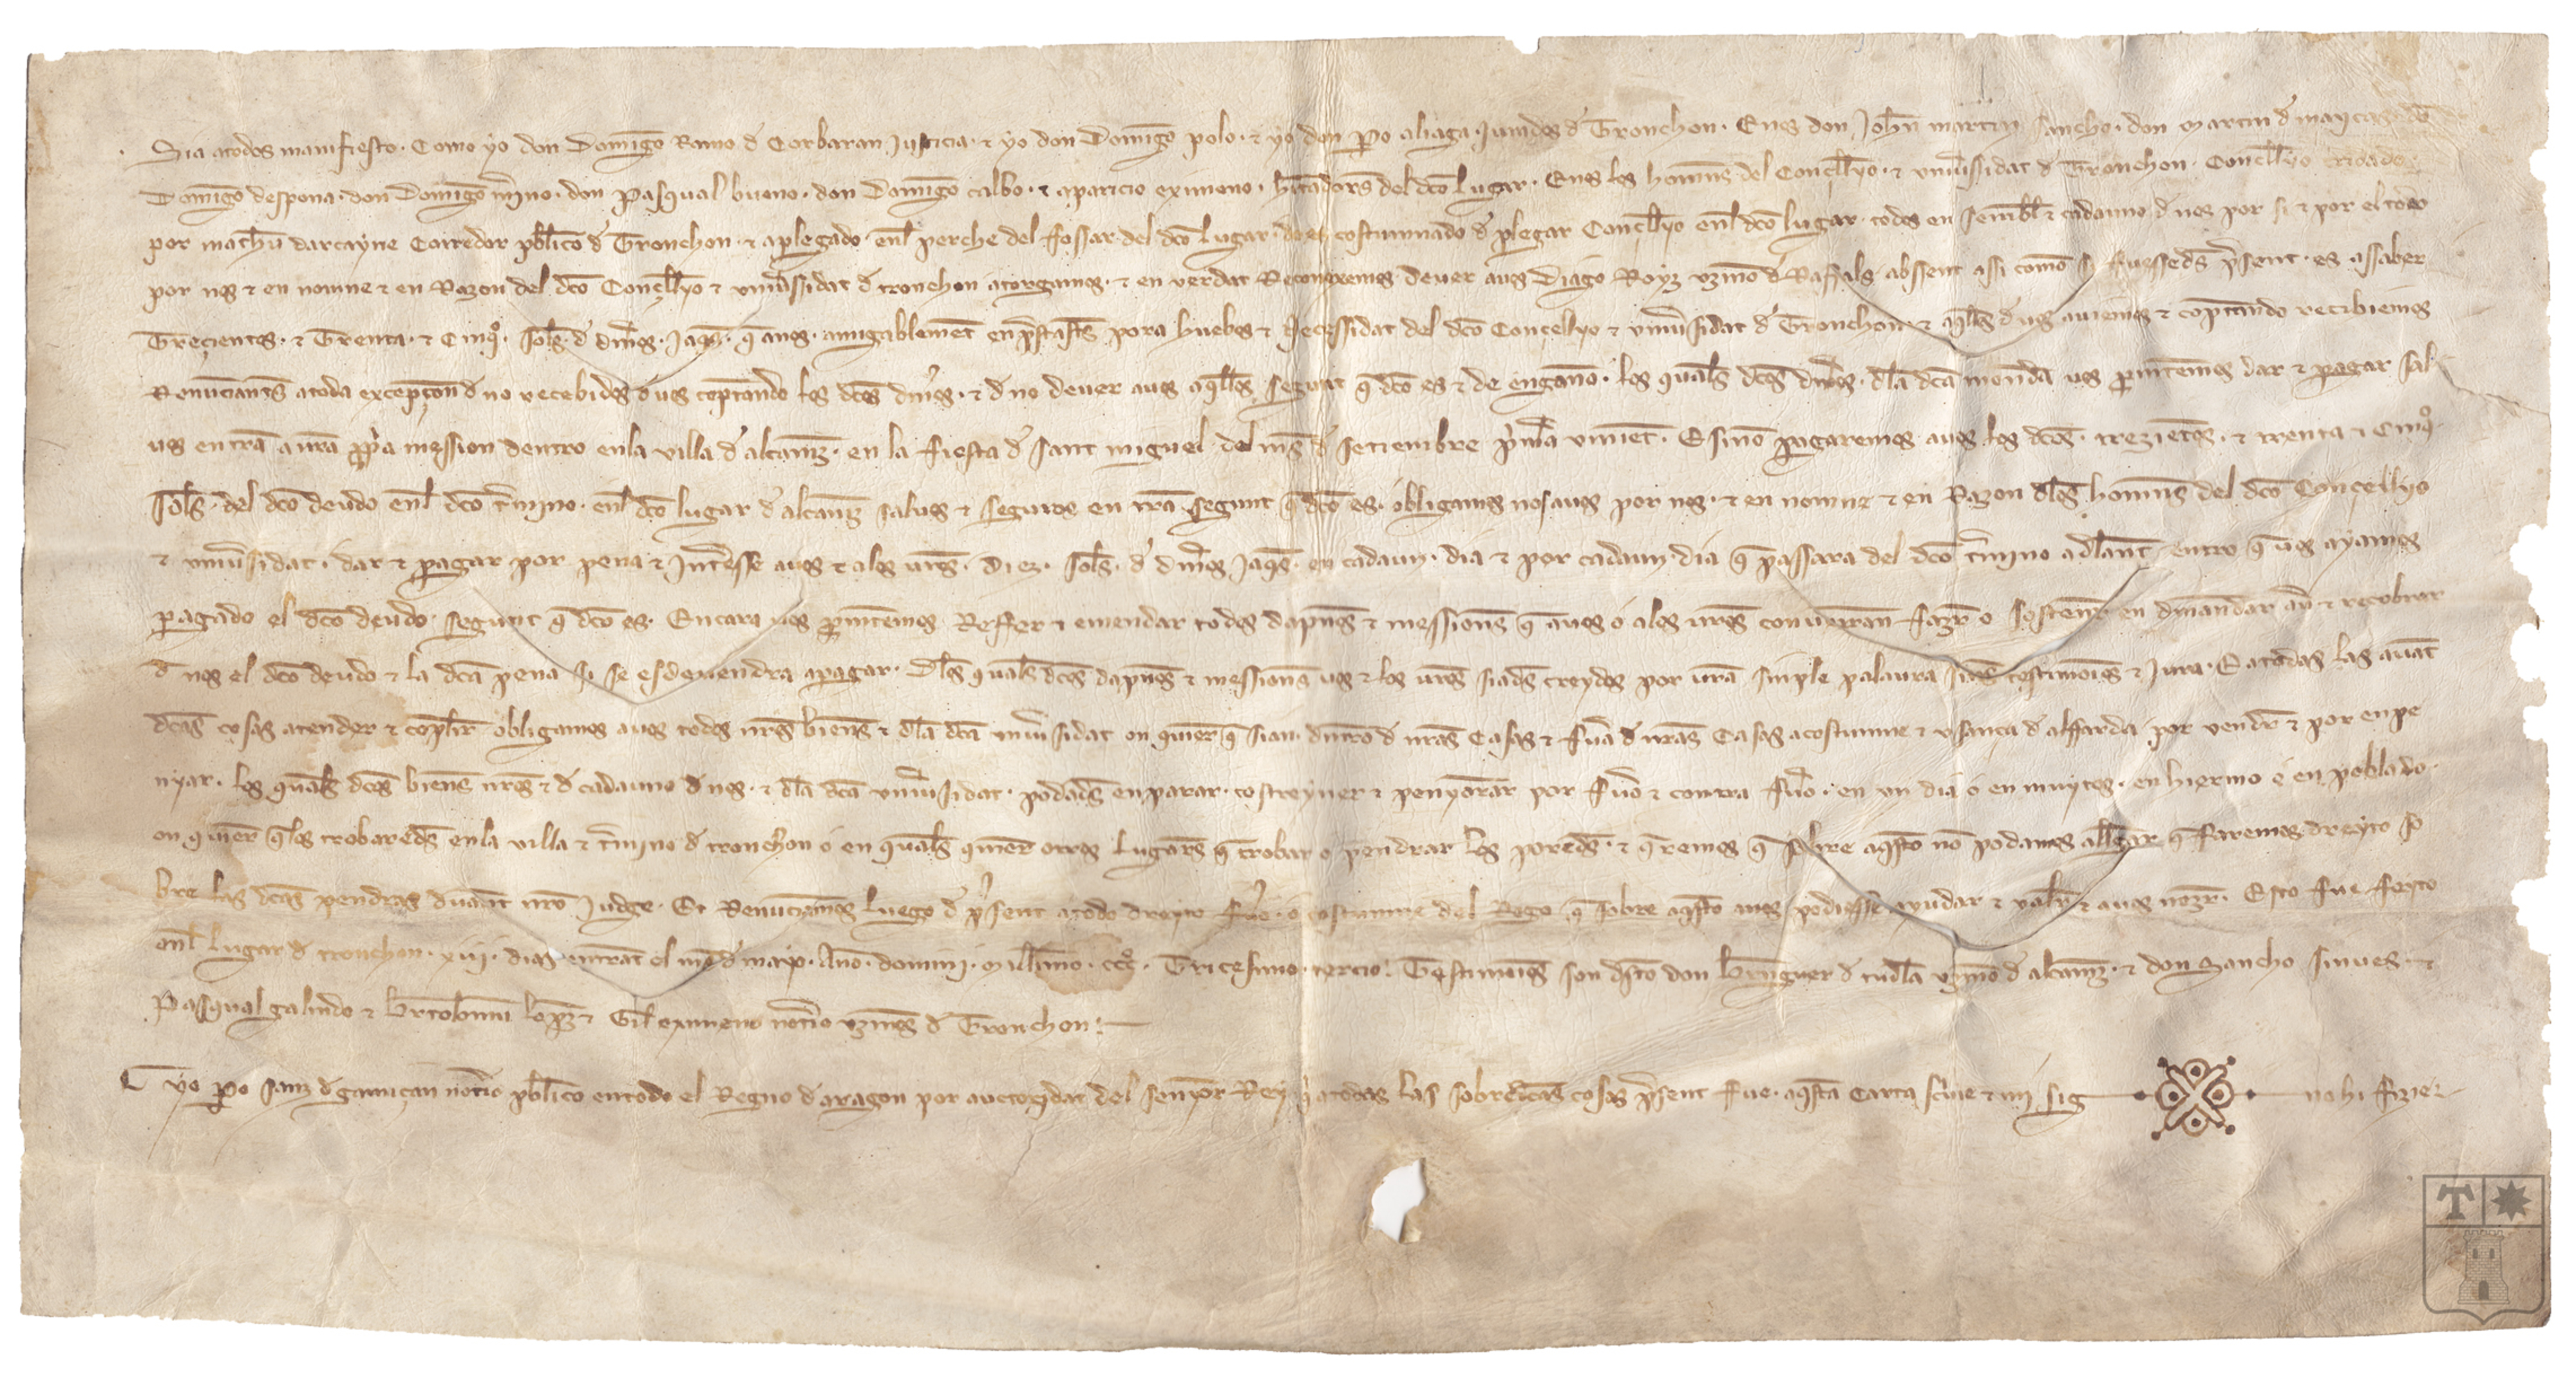 Sia a todos manifiesto. Como yo don Domīgo Ramo đ Corbaran Justicia. ⁊ yo don Domīgo polo. ⁊ yo don Po aliaga Jurados đ Tronchon. E nos don Johň martin sancho. don Martin đ maycas. đō
Domīgo despona. don Domīgo mīno. don Pasqual bueno. don Domīgo calbo. ⁊ aparicio eximeno. hītadors del dc̄o lugar. E nos los homn̄s del Conçello. ⁊ vniũsidat đ Tronchon. Conçello cridado
por math̄u darcayne Corredor pb̄lico đ Tronchon. ⁊ aplegado. enl̄ perche del fossar del dc̄o lugar. do es costumnado đ plegar Conçello enl̄ dc̄o lugar. todos en sembl̄ ⁊ cadauno đ nos por si ⁊ por el todo
por nos ⁊ en nomne ⁊ en Razon del dc̄o Conçello ⁊ vniũsidat đ tronchon atorgamos. ⁊ en verdat Reconexemos deuer a uos Diago Royz vzīno đ Raffals absent assi como si fuessedes p̄sent. es assaber
Trezientos. ⁊ Trenta. ⁊ Cinq̊. sol̄s. đ din̄os. Jaq̄s. q̄ a nos. amigablemēt enp̄stastes pora huebos ⁊ Necessidat del dc̄o Concellyo ⁊ vniũsidat đ Tronchon. ⁊ aq̄ll̄s đ uos auiemos ⁊ cōptando recibiemos
Renūciants a toda excepçon đ no recebidos đ uos cōptando los dc̄os din̄os. ⁊ đ no deuer a uos aq̄ll̄os segunt q̄ dc̄o es ⁊ de engano. los qual̄s dc̄os din̄os. dl̄a dc̄a monēda uos ꝓmetemos dar ⁊ pagar sal
uos en tr̄a a nr̄a ꝓp̄a mession dentro en la villa đ alcanīz. en la fiesta đ sant miguel del mes đ setiembre p̄m̄a vinient. E si no pagaremos a uos los dc̄os. trezientos. ⁊ trenta ⁊ Cinq̊
sol̄s. del dc̄o deudo enl̄ dc̄o t̄mino. enl̄ dc̄o lugar đ alcanīz saluos ⁊ seguros en tr̄a segunt q̄ dc̄o es. obligamos nos a uos por nos. ⁊ en nomne ⁊ en Razon dl̄os homn̄s del dc̄o Conçellyo
⁊ vniũsidat. dar ⁊ pagar por pena ⁊ Jnt̄esse a uos ⁊ a los ur̄os. Diez. sol̄s. đ din̄os Jaq̄s. en cadaun. dia ⁊ por cadaun dia q̄ passara del dc̄o t̄mino adl̄ant. entro q̄ uos ayamos
pagado el dc̄o deudo. segunt q̄ dc̄o es. Encara uos ꝓmetemos Reffer ⁊ emendar todos dapnos ⁊ messions q̄ a uos o a los ur̄os conuerran fazer o sostener en dmandar au̅ ⁊ recobrar
đ nos el dc̄o deudo ⁊ la dc̄a pena si se esdeuendra a pagar. Dl̄os qual̄s dc̄os dapnos ⁊ messions uos ⁊ los ur̄os siades creydos por ur̄a simple palaura sines testimoīs ⁊ Jura. E a todas las auāt
dc̄as cosas atender ⁊ cōplir obligamos a uos todos nr̄os biens ⁊ dl̄a dc̄a vniũsidat on quier q̄ sian. dintro đ nr̄as Casas ⁊ fuera đ nr̄as Casas a costumne ⁊ vsança đ alffarda por vender ⁊ por enpe
nyar. los qual̄s dc̄os biens nr̄os ⁊ đ cadauno đ nos. ⁊ dl̄a dc̄a vniũsidat. podades enparar. costreyner ⁊ penyorar por fuero ⁊ contra fuero. en vn dia o en muytos. en hiermo o en poblado.
on quier q̄ los trobaredes en la villa ⁊ t̄mino đ tronchon o en qual̄s quier otros lugares q̄ trobar o pendrar los poredes. ⁊ q̄remos q̄ sobre aq̄sto no podamos allegar q̄ faremos dreyto so
bre las dc̄as pendras dauant nr̄o Judge. Et Renūciamos luego đ p̄sent a todo dreyto fuero. o costumne del Regno q̄ sobre aq̄sto a nos podiesse ayudar ⁊ valer ⁊ a uos nozer. Esto fue feyto
enl̄ lugar đ tronchon. xiij. dias entrāt el mes đ mayo. Año. domini. Millīmo. ccc̊. Tricesimo. tercio. Testimoīs son đsto don Bn̄guer đ tudl̄a vzīno đ alcanīz. ⁊ don Sancho sinues. ⁊
Pasqual galindo ⁊ bertolomeu lopez ⁊ Gil eximeno notīo vzinos đ Tronchon.
yo Po sanz đ notīo pb̄lico en todo el Regno đ aragon por auctoridat del senyor Rey q̄ a todas las sobredc̄as cosas p̄sent fue. aq̄sta carta sc̄uie ⁊ mi sig no hi fizie